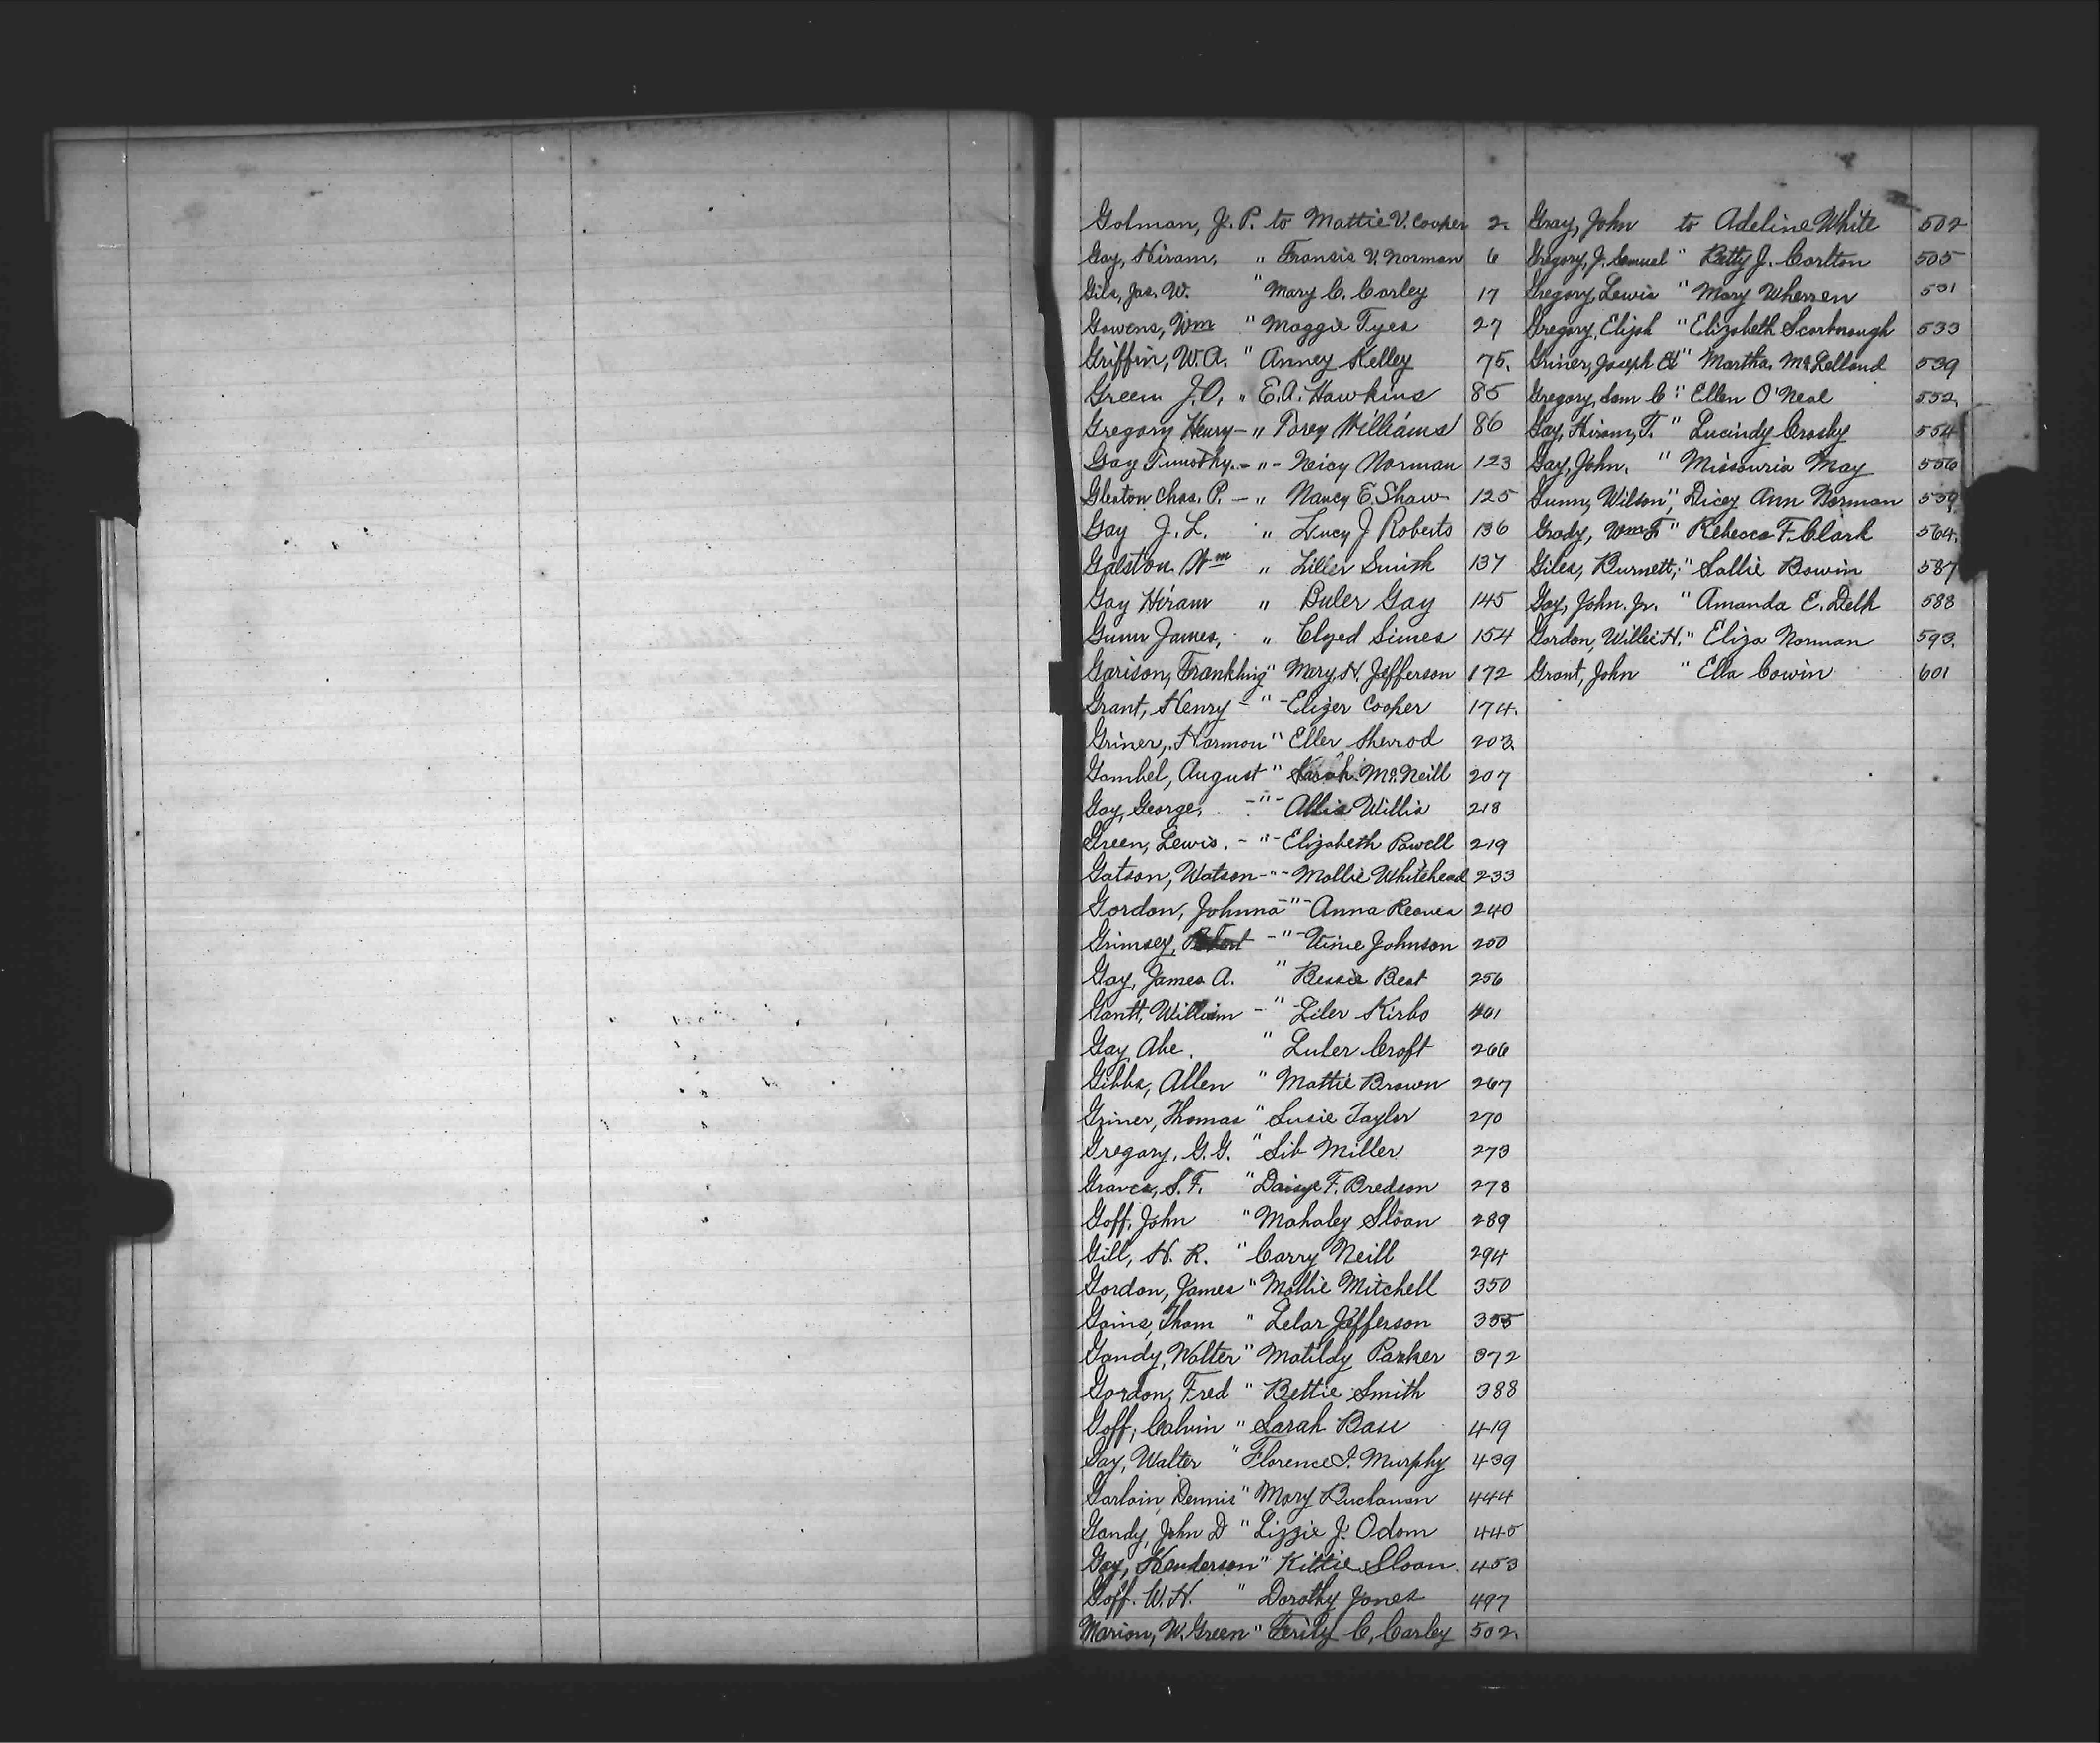 Golman, J. P. to Mattie V. Cooper 2
Gay, Hiram, " Fransis V. Norman 6
Gils, Jas. W. " Mary C. Carley 17
Gowens, Wm " Maggie Tyes 27
Griffin, W. A. " Anney Kelley 75.
Green J. O. " E. A. Hawkins 85
Gregory Henry - " Torey Williams 86
Gay Timothy. - " - Neicy Norman 123
Gleaton Chas. P. - " Nancy E. Shaw 125
Gay J. L. " Lucy J Roberts 136
Galston Wm " Liller Smith 137
Gay Hiram " Buler Gay 145
Gunn James, " Clyed Simes 154
Garison, Frankling " Mary H. Jefferson 172
Grant, Henry - " - Elizer Cooper 174.
Griner, Harmon " Eller Sherrod 203
Gamhel, August " Sarah McNeill 207
Gay, George, - " - Allie Willis 218
Green, Lewis. - " - Elizabeth Powell 219
Gatson, Watson - " - Mollie Whitehead 233
Gordon, Johnna - " - Anna Reaves 240
Grimsey, - " - Vinie Johnson 200
Gay, James A. " Bessie Best 256
Gantt, William - " Liler Kirbo 401
Gay, Abe. " Luler Croft 266
Gibbs, Allen " Mattie Brown 267
Griner, Thomas " Susie Taylor 270
Gregory, G. G. " Sib Miller 273
Graves, S. F. " Daisye F. Bredson 278
Goff, John " Mahaley Sloan 289
Gill, H. R. " Carry Neill 294
Gordon, James " Mollie Mitchell 350
Gains, Thom " Lelar Jefferson 355
Gandy, Walter " Matildy Parker 372
Gordon, Fred " Bettie Smith 388
Goff, Calvin " Sarah Bass 419
Gay, Walter " Florence I. Murphy 439
Garlain, Dennis " Mary Buchanan 444
Gandy, John D " Lizzie J. Odom 445
Gay, Henderson " Kittie Sloan 453
Goff. W. H. " Dorothy Jones 497
Marion, W. Green " C. Carley 502.
Gray, John to Adeline White 502
Gregory, J. Samuel " Betty J. Carlton 505
Gregory, Lewis " Mary Wherren 531
Gregory, Elijah " Elizabeth Scarborough 533
Griner, Joseph " Martha McLelland 539
Gregory, Sam C " Ellen O'Neal 552.
Gay, Hiram, T. " Lucindy Crosby 554
Gay, John. " Missouria May 556
Gunn, Wilson " Dicey Ann Norman 559
Grady, Wm F. " Rebecca F. Clark 564.
Giles, Burnett, " Sallie Bowin 587
Gay, John. Jr. " Amanda E. Delk 588
Gordon, Willie H. " Eliza Norman 593.
Grant, John " Ella Cowin 601